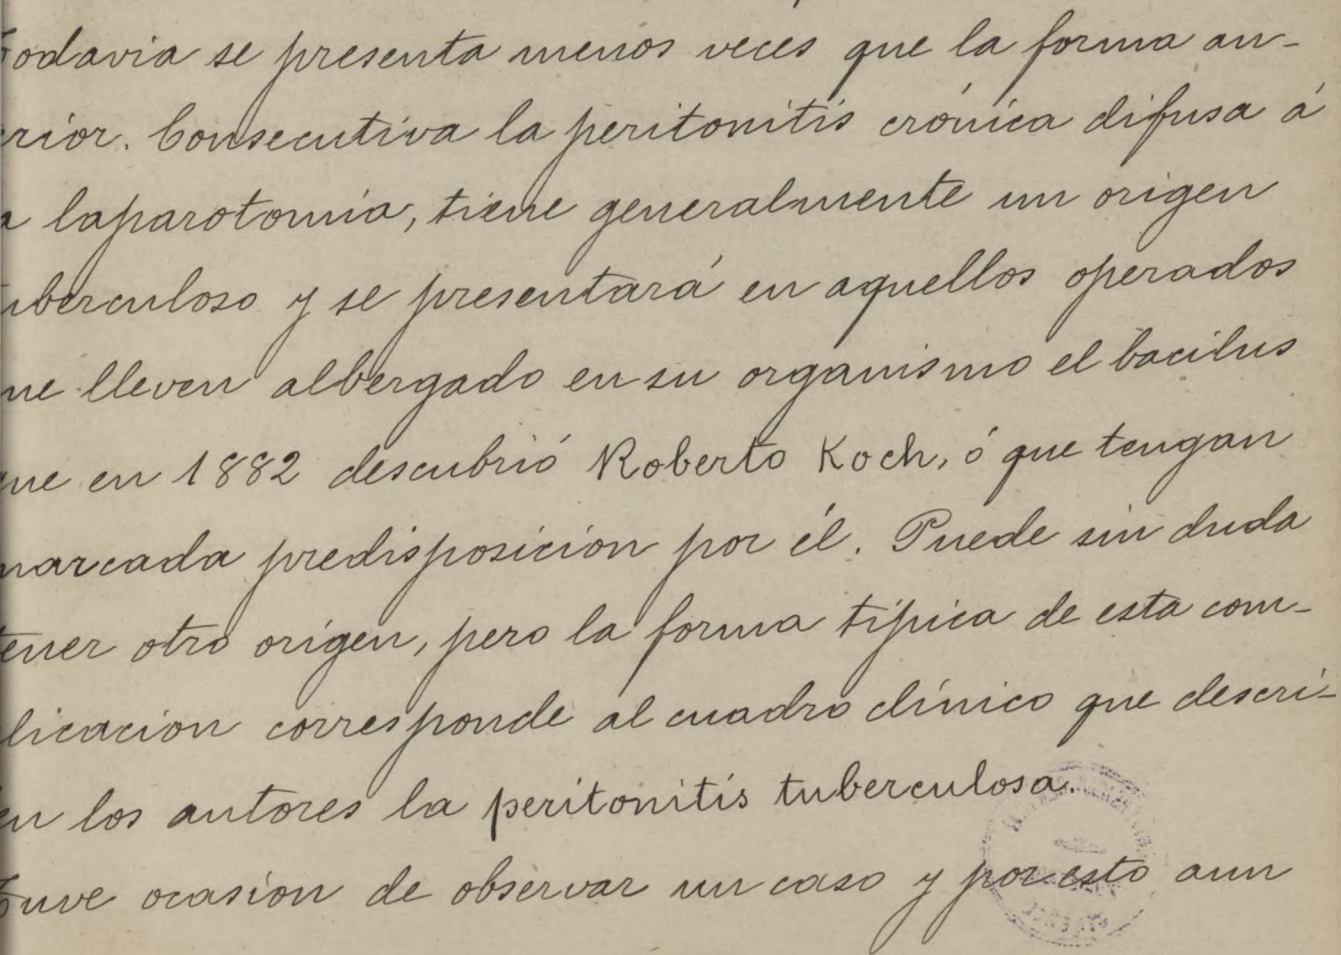 Todavia se presenta menos veces que la forma an-
rior. Consecutiva la peritonitis crónica difusa á
a laparotomía, tiene generalmente un origen
uberculoso y se presentará en aquellos operados
ue lleven albergado en su organismo el bacilus
ue en 1882 descubrió Roberto Koch, ó que tengan
marcada predisposicion por él. Puede sin duda
tener otro origen, pero la forma típica de esta com-
licacion corresponde al cuadro clínico que descri-
en los autores la peritonitis tuberculosa.
Tuve ocasion de observar un caso y por esto aun